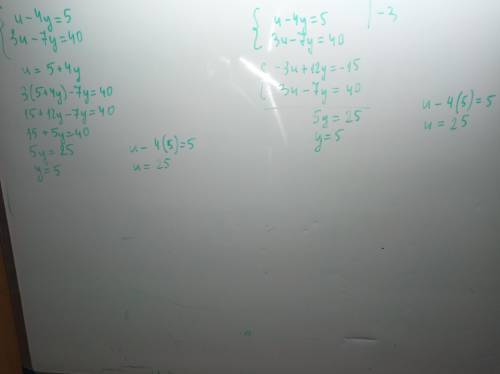 u-4y=5
3u-7y=40
u=5+4y
3(5+4y)-7y=40
15+12y-7y=40
15+5y=40
5y=25
y=5
u-4(5)=5
u=25
u-4y=5 | -3
3u-7y=40
-3u+12y=-15
3u-7y=40
5y=25
y=5
u-4(5)=5
u=25